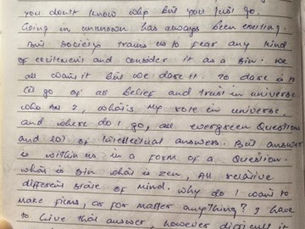 you don't know why but you just go.
Going in unknown has always been exciting.
And society trains us to fear any kind
of excitement and consider it as a sin. We
all want it but we dare it. To dare is to
go of all belief and trust in universe.
who am I, what is my role in universe,
and where do I go, all evergreen Question
and lot of intellectual answers. But answer
is within us in a form of a Question.
what is sin what is zen, All relative
different state of mind. Why do I want to
make films, or for matter anything? I have
to live that answer, however difficult it